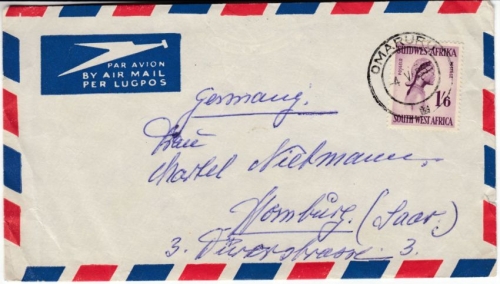 PAR AVION
BY AIR MAIL
PER LUGPOS
OMARURU
SUIDWES-AFRIKA
1/6
SOUTH WEST AFRICA
Germany.
Frau
Martel Niebmann.
Homburg. (Saar.)
3. 3.